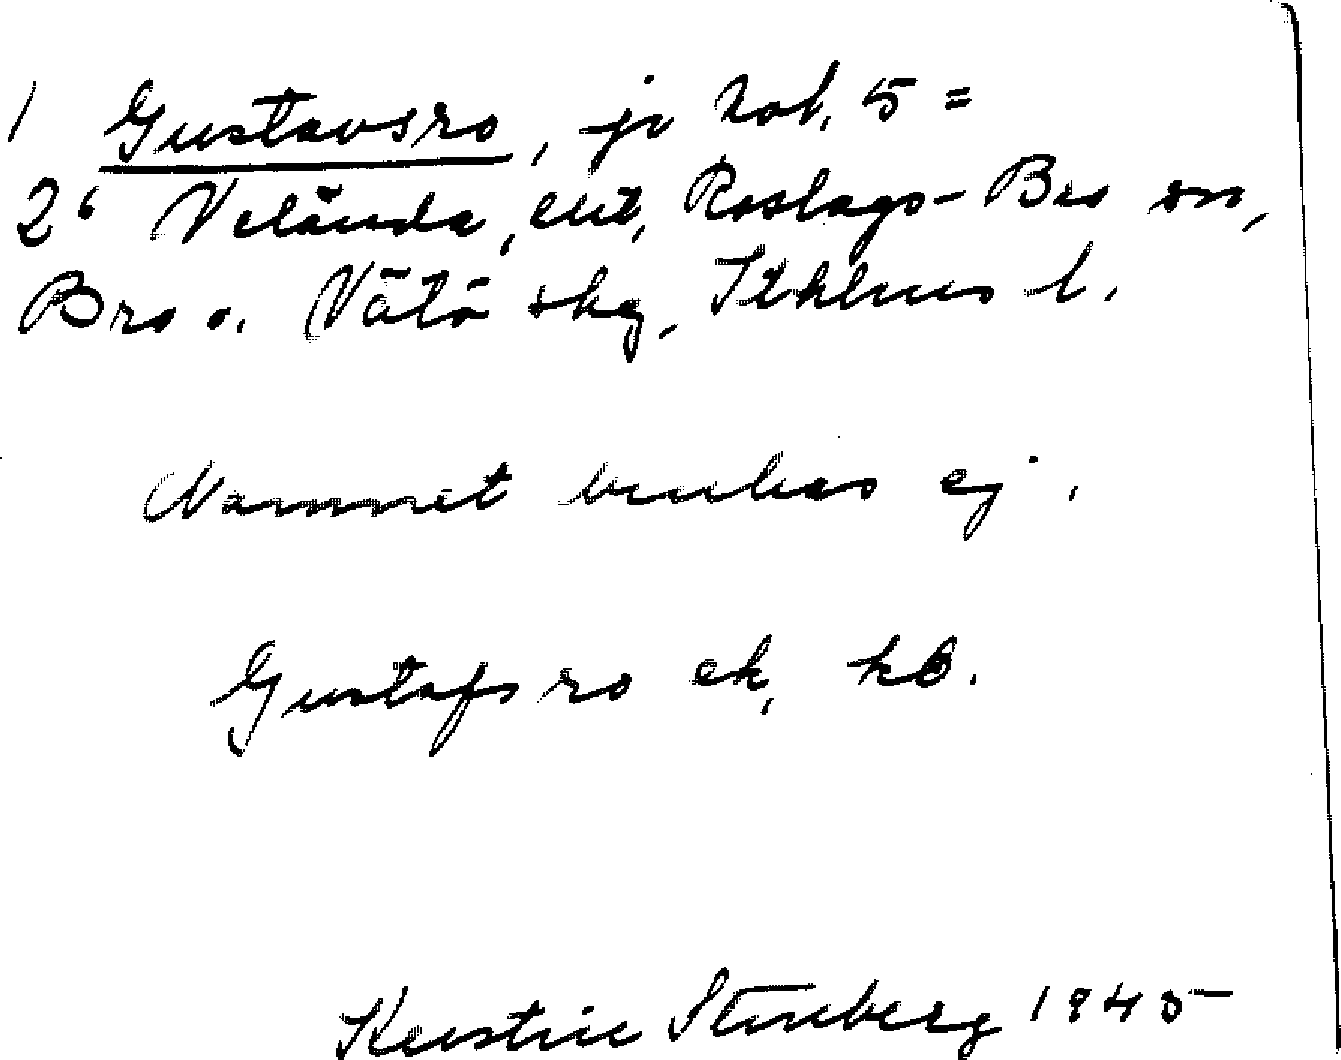 1 Gustavsro, jr kat. 5 =
2⁶ Veländа, Roslags-Bro sn,
Bro o. Vätö skg, Sthlms l.
Namnet brukas ej.
Gustafsro ek, kb.
Kerstin Stenberg 1945